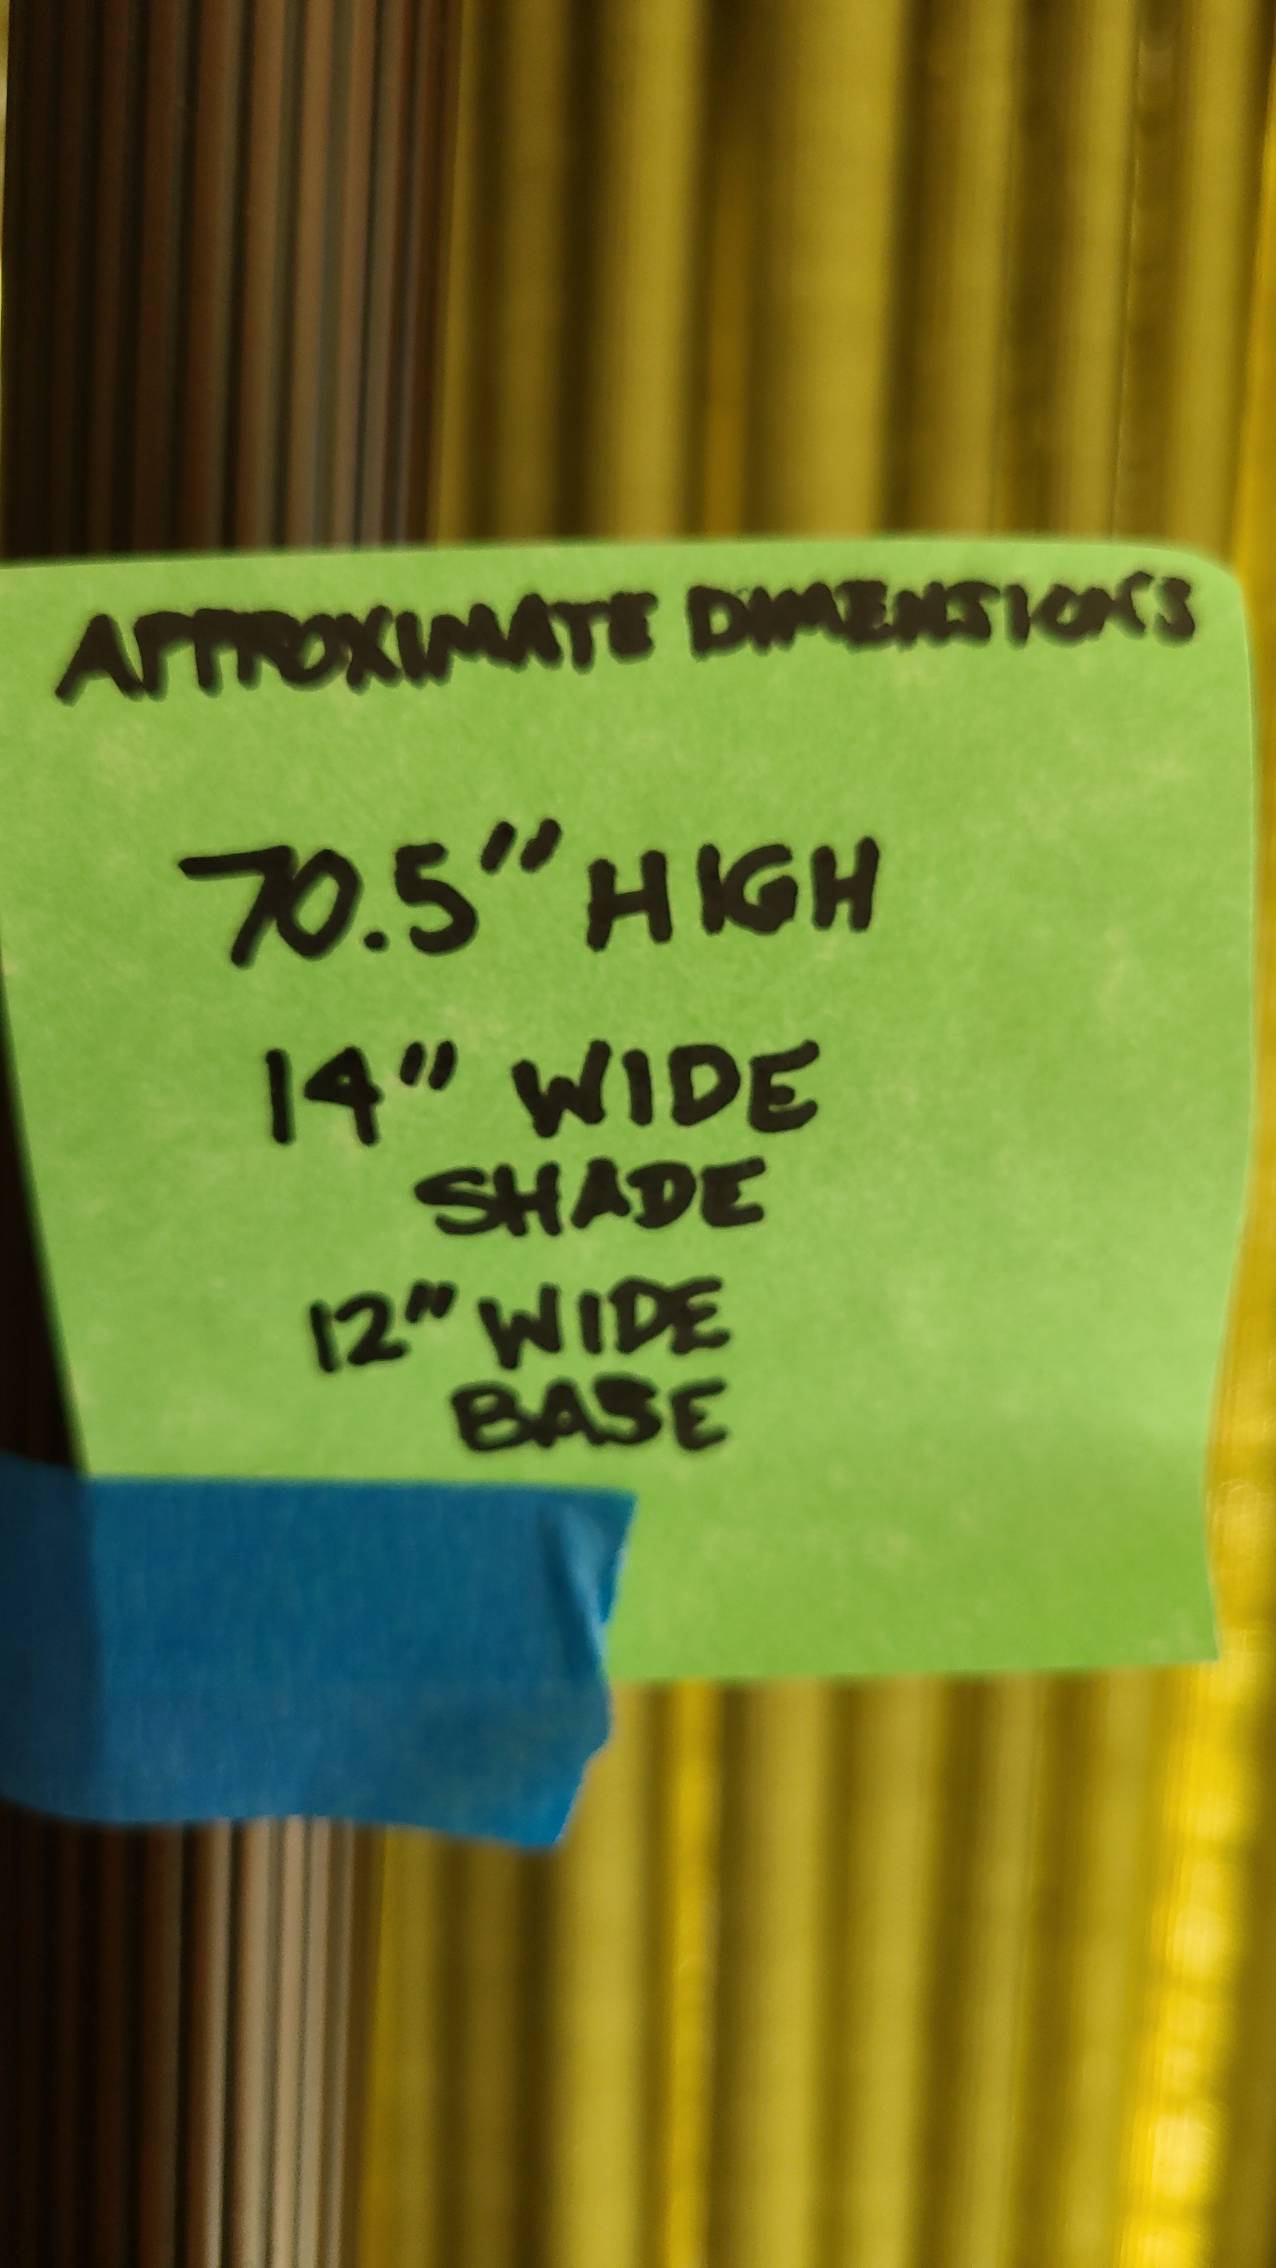 APPROXIMATE DIMENSIONS
70.5" HIGH
14" WIDE
SHADE
12" WIDE
BASE